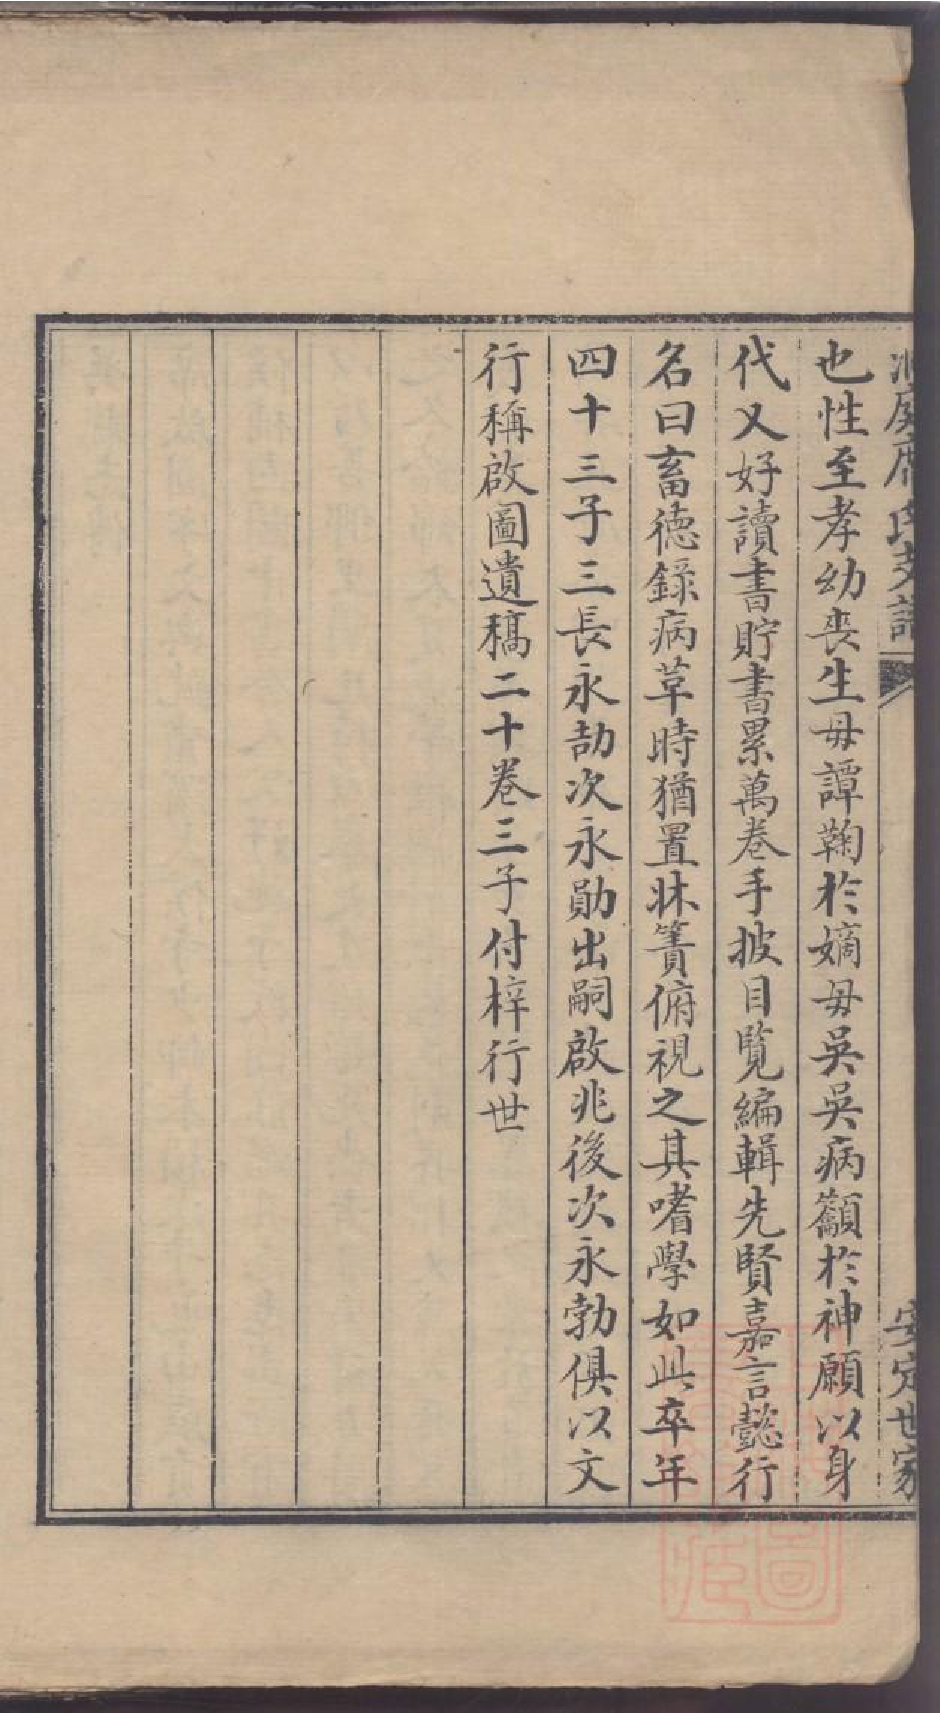 洞庭席氏支譜
安定世家
也性至孝幼丧生母譚鞠於嫡母吳吳病籲於神願以身
代又好讀書貯書累萬卷手披目覽編輯先賢嘉言懿行
名曰畜德錄病草時猶置牀簀俯視之其嗜學如此卒年
四十三子三長永劼次永勛出嗣啟兆後次永勃俱以文
行稱啟圖遺稿二十卷三子付梓行世